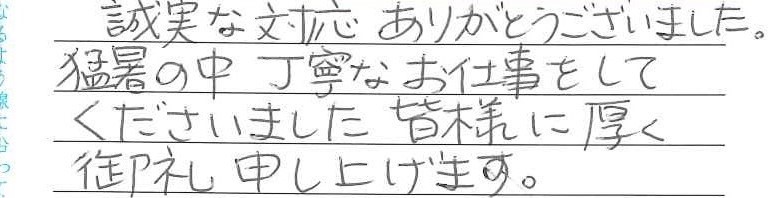 誠実な対応 ありがとうございました。
猛暑の中 丁寧なお仕事をして
くださいました 皆様に厚く
御礼申し上げます。